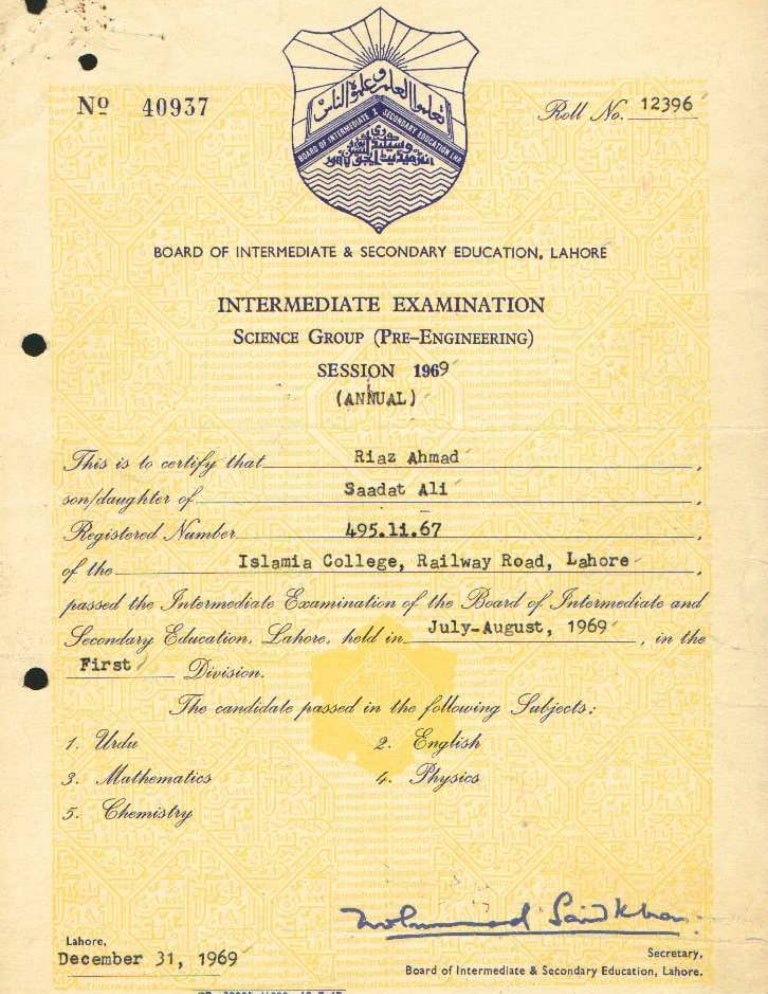 Nº 40937
Roll No. 12396
تعلموا العلم و علموه الناس
BOARD OF INTERMEDIATE & SECONDARY EDUCATION LHR
BOARD OF INTERMEDIATE & SECONDARY EDUCATION, LAHORE
INTERMEDIATE EXAMINATION
SCIENCE GROUP (PRE-ENGINEERING)
SESSION 1969
(ANNUAL)
This is to certify that Riaz Ahmad,
son/daughter of Saadat Ali,
Registered Number 495.li.67
of the Islamia College, Railway Road, Lahore,
passed the Intermediate Examination of the Board of Intermediate and
Secondary Education, Lahore, held in July-August, 1969, in the
First Division.
The candidate passed in the following Subjects:
1. Urdu 2. English
3. Mathematics 4. Physics
5. Chemistry
Mohammad Said Khan
Lahore,
December 31, 1969
Secretary,
Board of Intermediate & Secondary Education, Lahore.